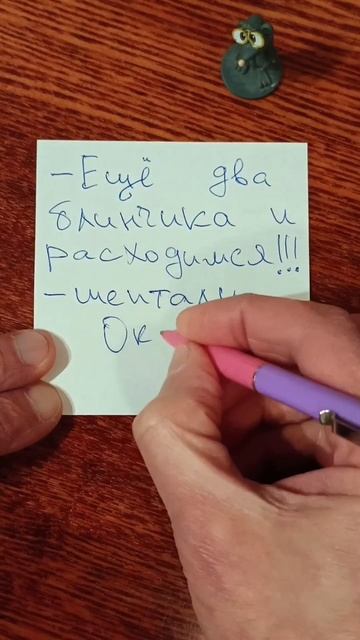 - Ещё два
блинчика и
расходимся!!!
- шептали
Ок